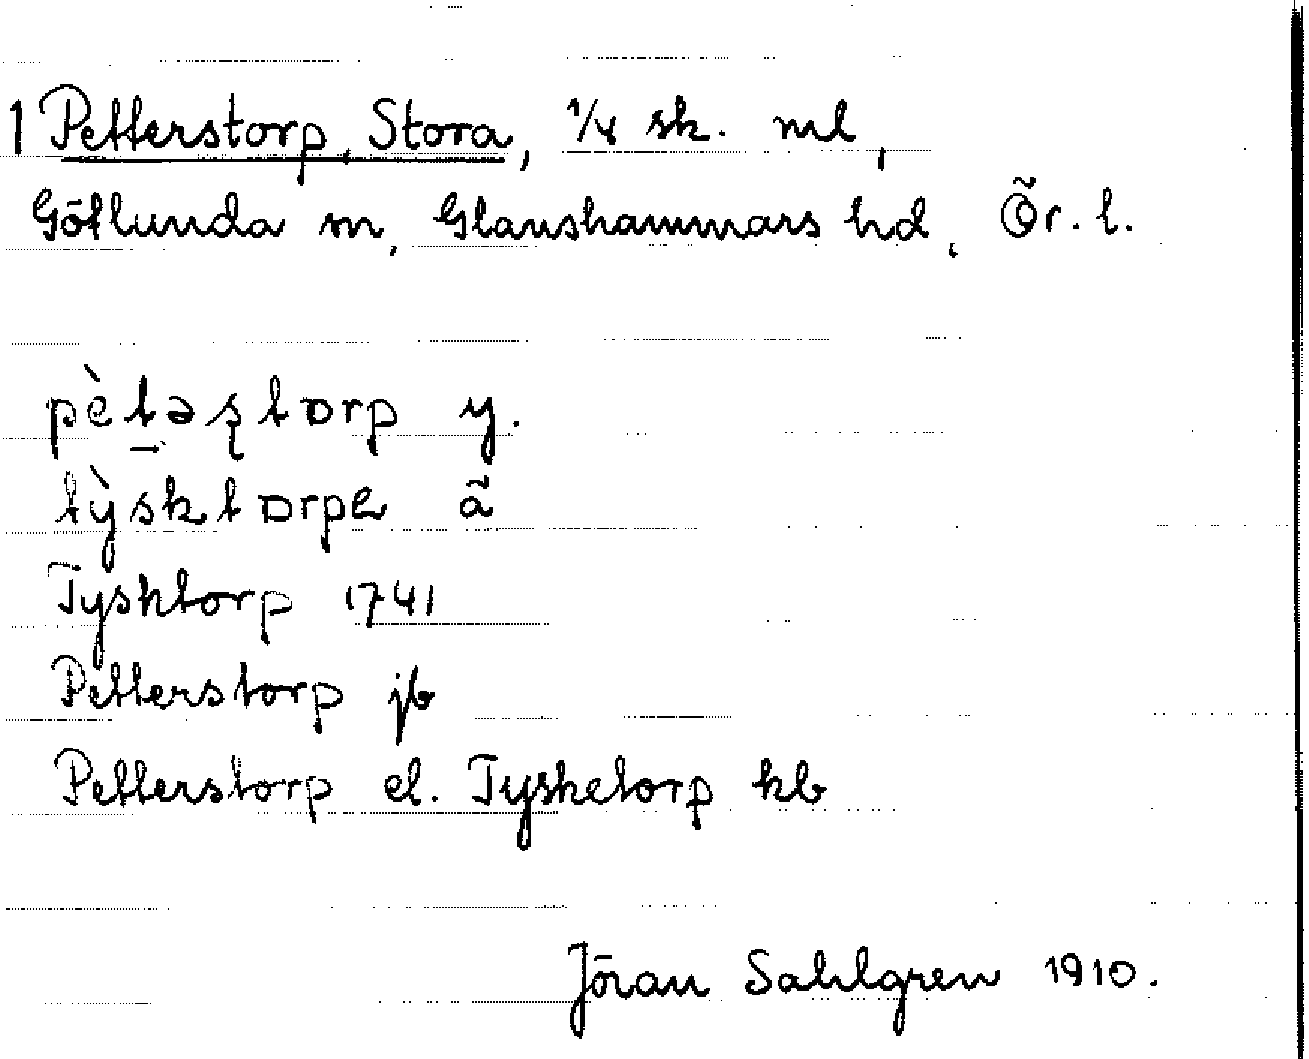 1 Petterstorp, Stora, 1/4 sk. ml,
Götlunda sn, Glanshammars hd, Ör. l.
pètəʂtɒrp y.
tỳsktɒrpe ä
Tysktorp 1741
Petterstorp jb
Petterstorp el. Tysketorp kb
Jöran Sahlgren 1910.